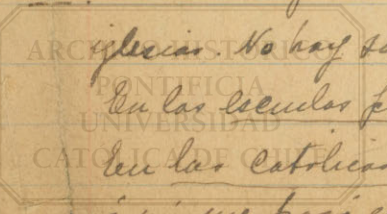 iglesias. No hay
En las escuelas
En las católicas
ARCHIVO HISTÓRICO
PONTIFICIA
UNIVERSIDAD
CATÓLICA DE CHILE